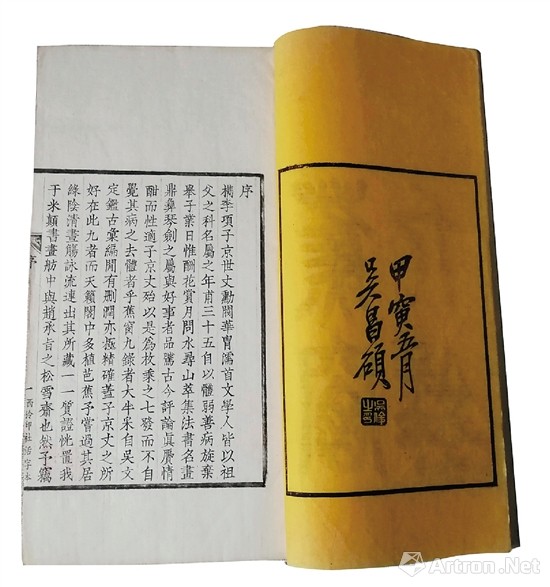 甲寅月
吳昌碩
序
檇李項子京世丈勳閥華冑濡首文學人皆以祖
父之科名屬之年甫三十五自以體弱善病旋棄
舉子業日惟酬花賞月問水尋山萃集法書名畫
鼎彝琴劍之屬與好事者品騭古今評論眞贗情
酣而性適子京丈殆以是爲枚乘之七發而不自
覺其病之去體者乎蕉窗九錄者大半采自吳文
定鑑古彙編閒有刪潤亦極精確蓋子京丈之所
好在此九者而天籟閣中多植芭蕉予嘗過其居
綠陰清晝觴詠流連出其所藏一一質證恍置我
于米顛書畫舫中與趙承旨之松雪齋也然予竊
序
一
西泠印社活字本
Artron.Net